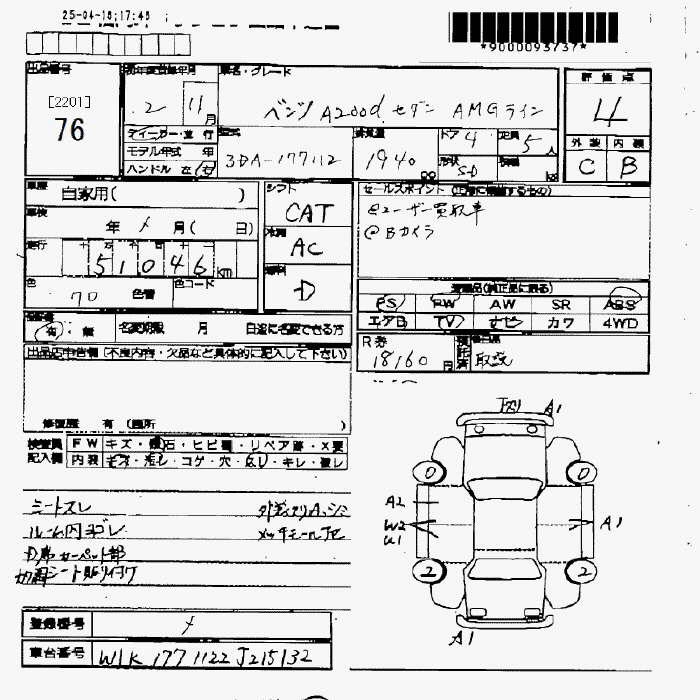 25-04-18;17:48
*9000093737*
出品番号
[2201]
76
初年度登録年月
2 11月
車名・グレード
ベンツ A200d セダン AMGライン
評価点
4
外装 内装
C B
ディーラー・並行
モデル年式 年
ハンドル 左・右
型式
3DA-177112
排気量
1940 cc
ドア 4
形状 S-D
定員 5人
車歴
自家用( )
車検
年 メ 月( 日)
走行
51046 km
色
色替
色コード
シフト
CAT
冷房
AC
燃料
D
セールスポイント (正確に記載するもの)
@ユーザー買取車
@Bカメラ
装備品(純正品に限る)
PS PW AW SR ABS
エアB TV ナビ カワ 4WD
R券
18160円
取説
有・無 名変期限 月 日迄に名変できる方
出品店申告欄 (不良内容・欠品など具体的に記入して下さい)
修復歴 有 (箇所 )
検査員記入欄
FW キズ・飛石・ヒビ・リペア跡・X要
内装 キズ・汚レ・コゲ・穴・スレ・キレ・破レ
シートスレ
ルーム内ヨゴレ
D席カーペット部
メッキモール
A1
A2
W2
U1
A1
0 0
2 2
A1
登録番号 メ
車台番号 W1K 177 1122 J215132